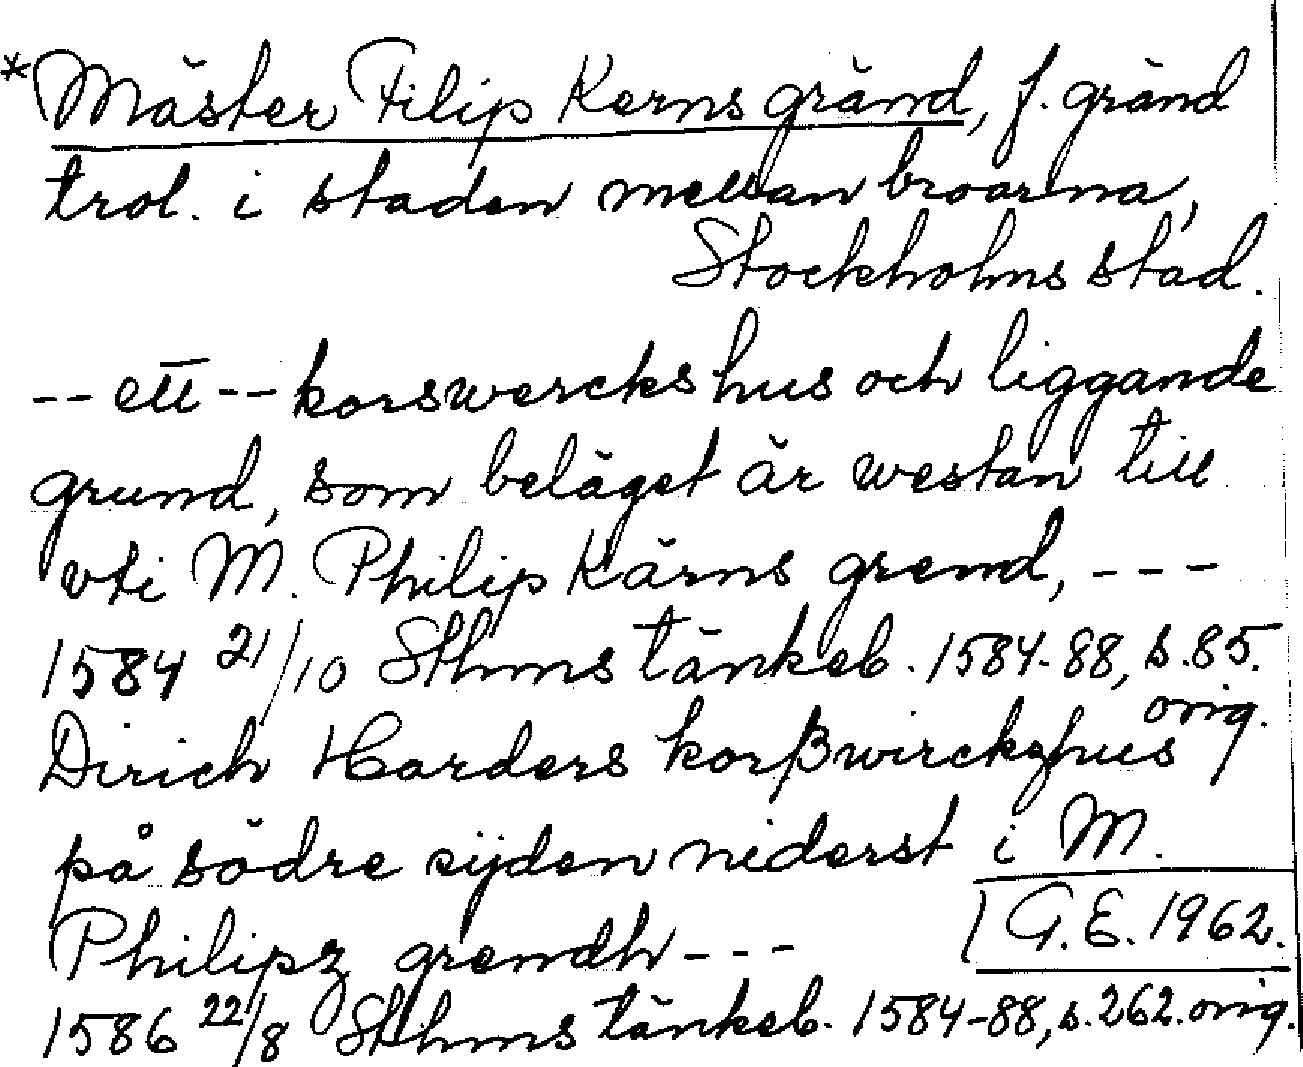 *Mäster Filip Kerns gränd, f. gränd
trol. i staden mellan broarna,
Stockholms stad.
-- ett -- korswercks hus och liggande
grund, som beläget är westan till
vti M. Philip Kärns grend, ---
1584 21/10 Sthms tänkeb. 1584-88, s. 85.
orig.
Dirich Harders korßwirckzhus
på södre sijden niderst i M.
Philipz grendh ---
G.E. 1962.
1586 22/8 Sthms tänkeb. 1584-88, s. 262. orig.